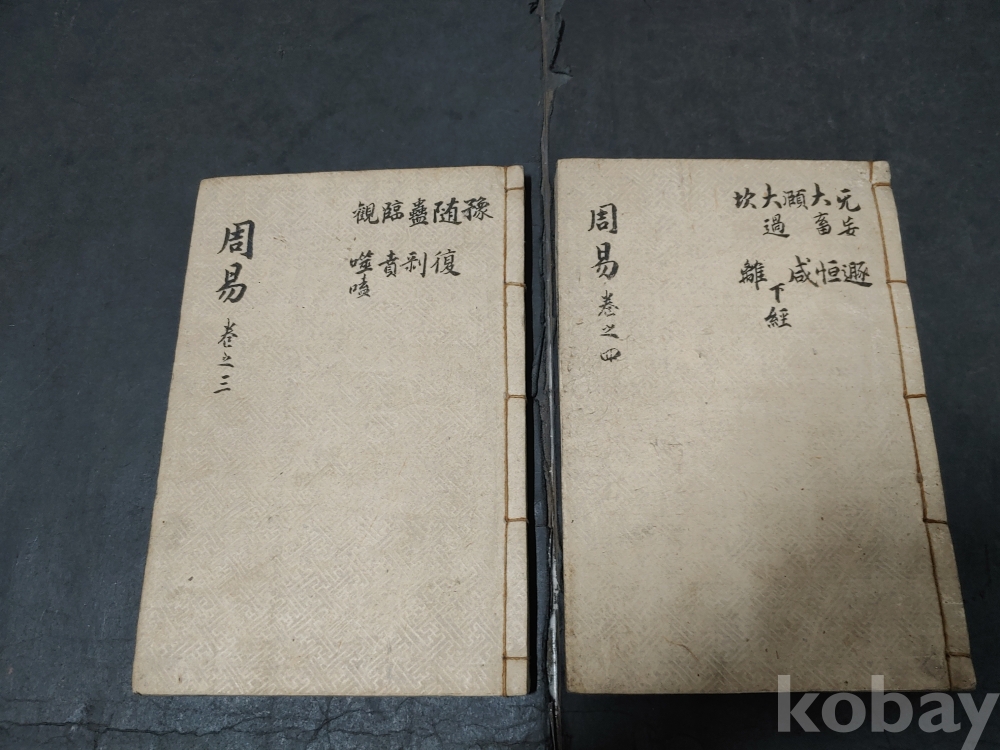 豫
随 復
蠱 剥
臨 賁
觀 噬嗑
周易 卷之三
无妄 遯
大畜 恒
頤 咸
大過 下經
坎 離
周易 卷之四
kobay